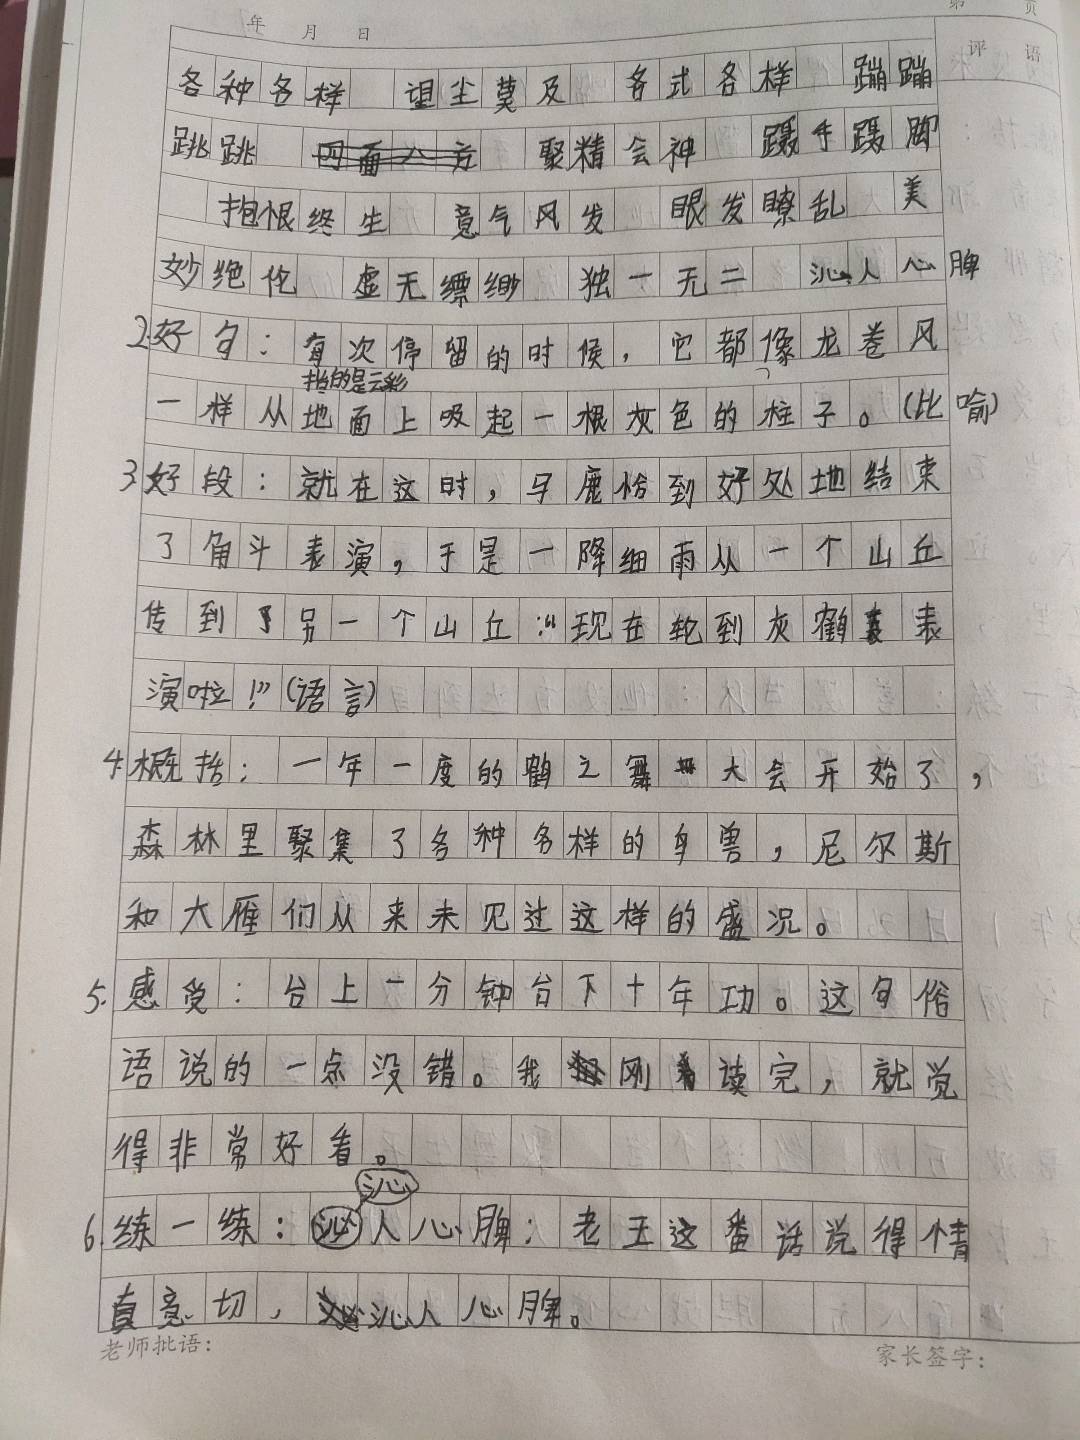 第 页
年 月 日
评 语
各种各样 望尘莫及 各式各样 蹦蹦
跳跳 四面八方 聚精会神 蹑手蹑脚
抱恨终生 意气风发 眼发瞭乱 美
妙绝伦 虚无缥缈 独一无二 沁人心脾
2.好句：每次停留的时候，它都像龙卷风
指的是云彩
一样从地面上吸起一根灰色的柱子。(比喻)
3.好段：就在这时，马鹿恰到好处地结束
了角斗表演，于是一降细雨从一个山丘
传到了另一个山丘：“现在轮到灰鹤表
演啦！”(语言)
4.概括：一年一度的鹤之舞大会开始了，
森林里聚集了各种各样的鸟兽，尼尔斯
和大雁们从来未见过这样的盛况。
5.感受：台上一分钟台下十年功。这句俗
语说的一点没错。我刚读完，就觉
得非常好看。
沁
6.练一练：沁人心脾：老王这番话说得情
真意切，沁人心脾。
老师批语：
家长签字：